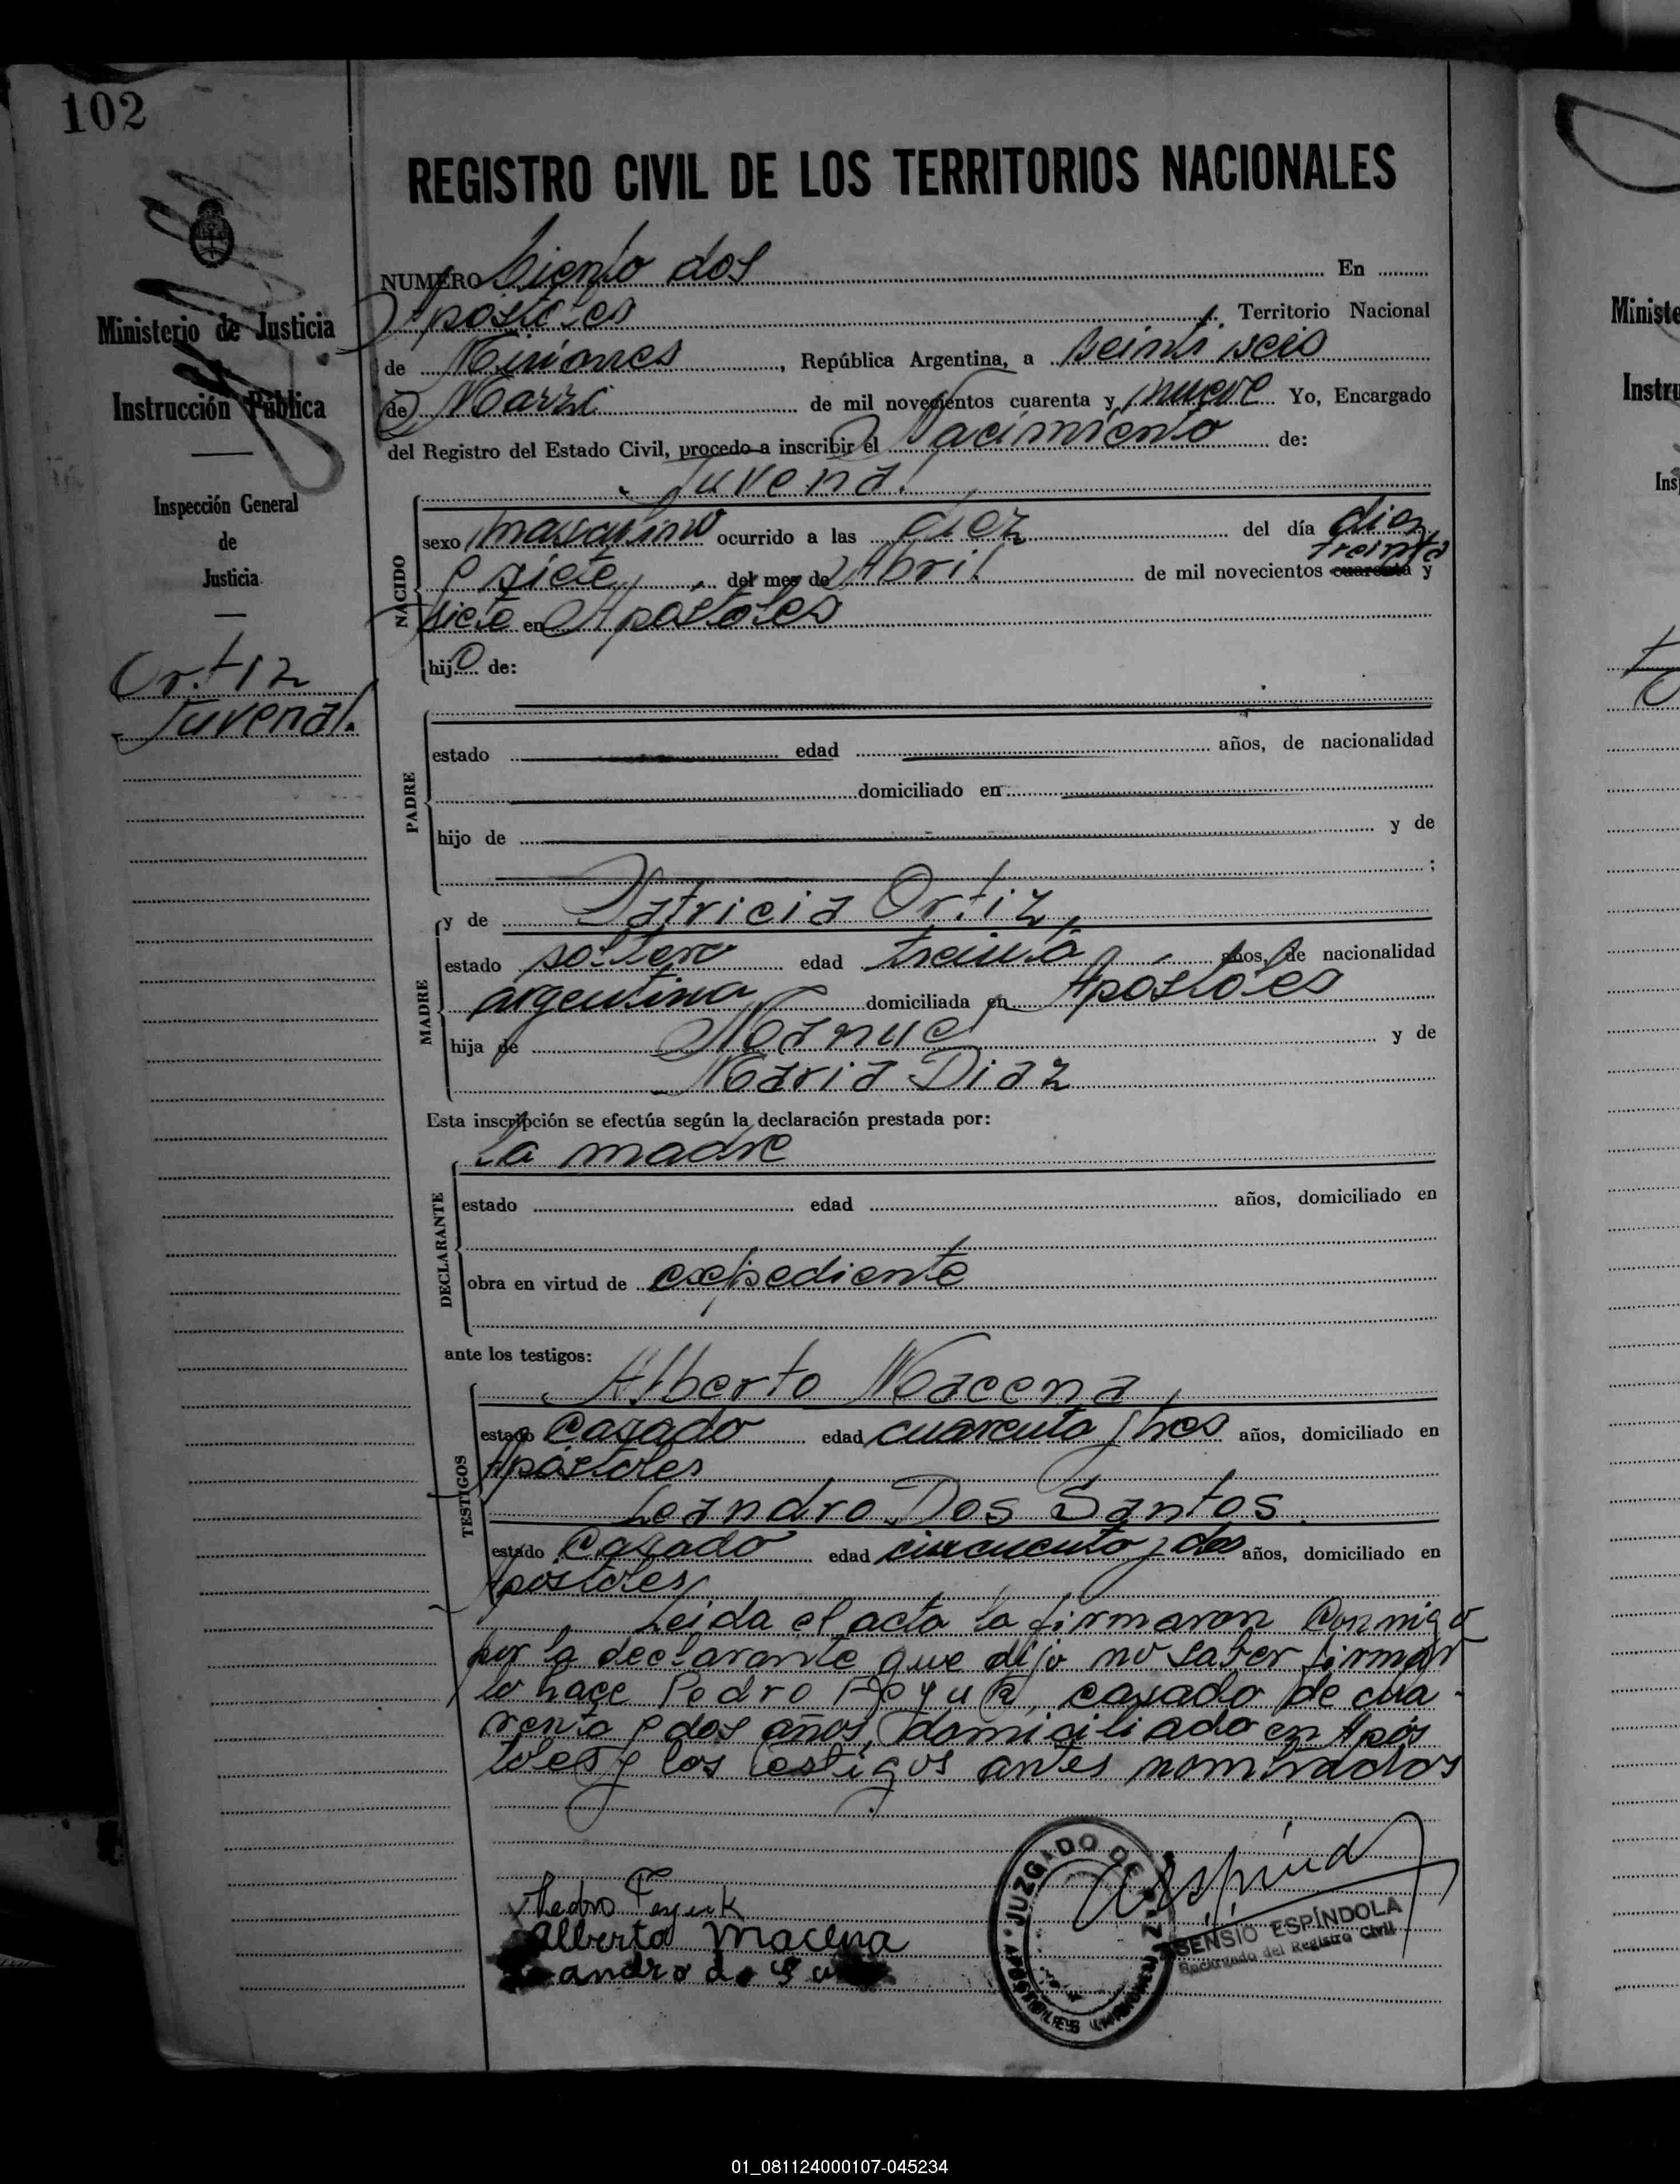 102
REGISTRO CIVIL DE LOS TERRITORIOS NACIONALES
Ministerio de Justicia
Instrucción Pública
Inspección General
de
Justicia
Ortiz
Juvenal.
NUMERO Ciento dos En
Apostoles Territorio Nacional
de Misiones, República Argentina, a veinti seis
de Marzo de mil novecientos cuarenta y nueve Yo, Encargado
del Registro del Estado Civil, procedo a inscribir el Nacimiento de:
Juvenal
NACIDO
sexo masculino ocurrido a las diez del día diez
treinta
e siete del mes de Abril de mil novecientos cuarenta y
siete en Apóstoles
hijo de:
PADRE
estado edad años, de nacionalidad
domiciliado en
hijo de y de
;
MADRE
y de Patricia Ortiz,
estado soltera edad treinta años, de nacionalidad
argentina domiciliada en Apóstoles
hija de Manuel y de
Maria Diaz
Esta inscripción se efectúa según la declaración prestada por:
la madre
DECLARANTE
estado edad años, domiciliado en
obra en virtud de expediente
ante los testigos:
TESTIGOS
Alberto Macena,
estado Casado edad cuarenta y tres años, domiciliado en
Apóstoles
Leandro Dos Santos.
estado Casado edad cincuenta y dos años, domiciliado en
Apostoles
Leida el acta la firmaron Conmigo
por la declarante que dijo no saber firmar
lo hace Pedro casado de cua-
renta e dos años, domiciliado en Após
toles y los testigos antes nombrados
Pedro
Alberto Macena
JUZGADO DE
APOSTOLES
ASENSIO ESPÍNDOLA
Encargado del Registro Civil
Ministe
Instru
Ins
01_081124000107-045234